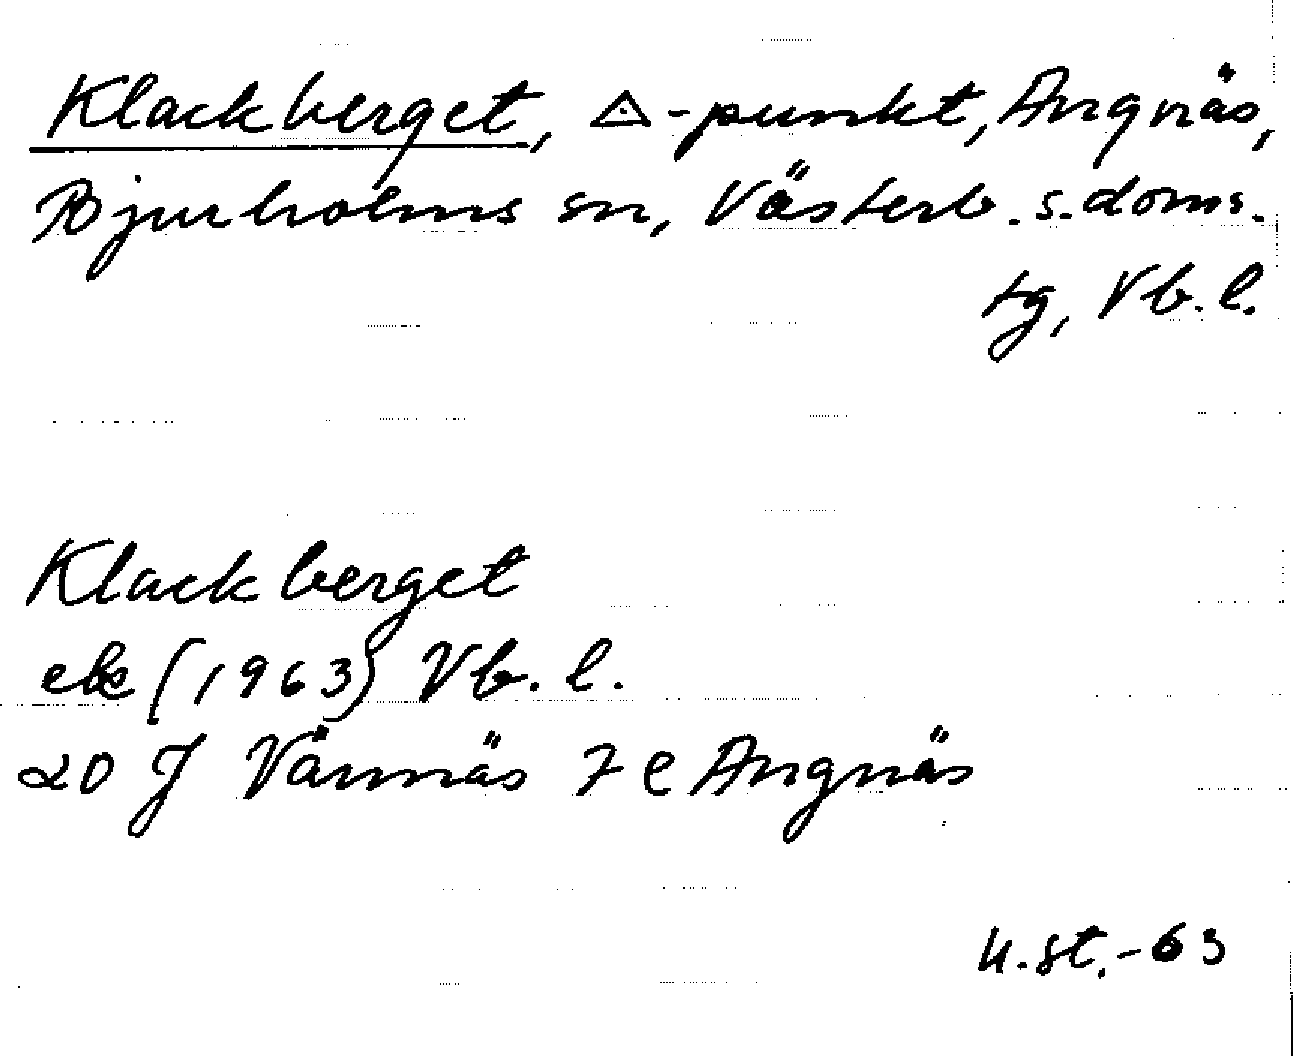 Klackberget, △-punkt, Angnäs,
Bjurholms sn, Västerb. s. doms.
tg, Vb. l.
Klackberget
ek (1963) Vb. l.
20 J Vännäs 7 e Angnäs
U.st.-63